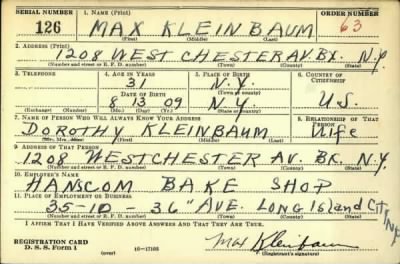 SERIAL NUMBER 1. NAME (Print) ORDER NUMBER
126 MAX KLEINBAUM 63
(First) (Middle) (Last)
2. ADDRESS (Print)
1208 WEST CHESTER AV. BX. N.Y.
(Number and street or R. F. D. number) (Town) (County) (State)
3. TELEPHONE 4. AGE IN YEARS 5. PLACE OF BIRTH 6. COUNTRY OF CITIZENSHIP
31 N.Y.
DATE OF BIRTH (Town or county)
8 13 09 N.Y. U.S.
(Exchange) (Number) (Mo.) (Day) (Yr.) (State or country)
7. NAME OF PERSON WHO WILL ALWAYS KNOW YOUR ADDRESS 8. RELATIONSHIP OF THAT PERSON
DOROTHY KLEINBAUM Wife
(Mr., Mrs., Miss) (First) (Middle) (Last)
9. ADDRESS OF THAT PERSON
1208 WESTCHESTER AV. BX. N.Y.
(Number and street or R. F. D. number) (Town) (County) (State)
10. EMPLOYER'S NAME
HANSCOM BAKE SHOP
11. PLACE OF EMPLOYMENT OR BUSINESS
35-10 - 36" AVE. LONG Island CITY NY
(Number and street or R. F. D. number) (Town) (County) (State)
I AFFIRM THAT I HAVE VERIFIED ABOVE ANSWERS AND THAT THEY ARE TRUE.
REGISTRATION CARD Max Kleinbaum
D. S. S. Form 1 (over) 16-17105 (Registrant's signature)